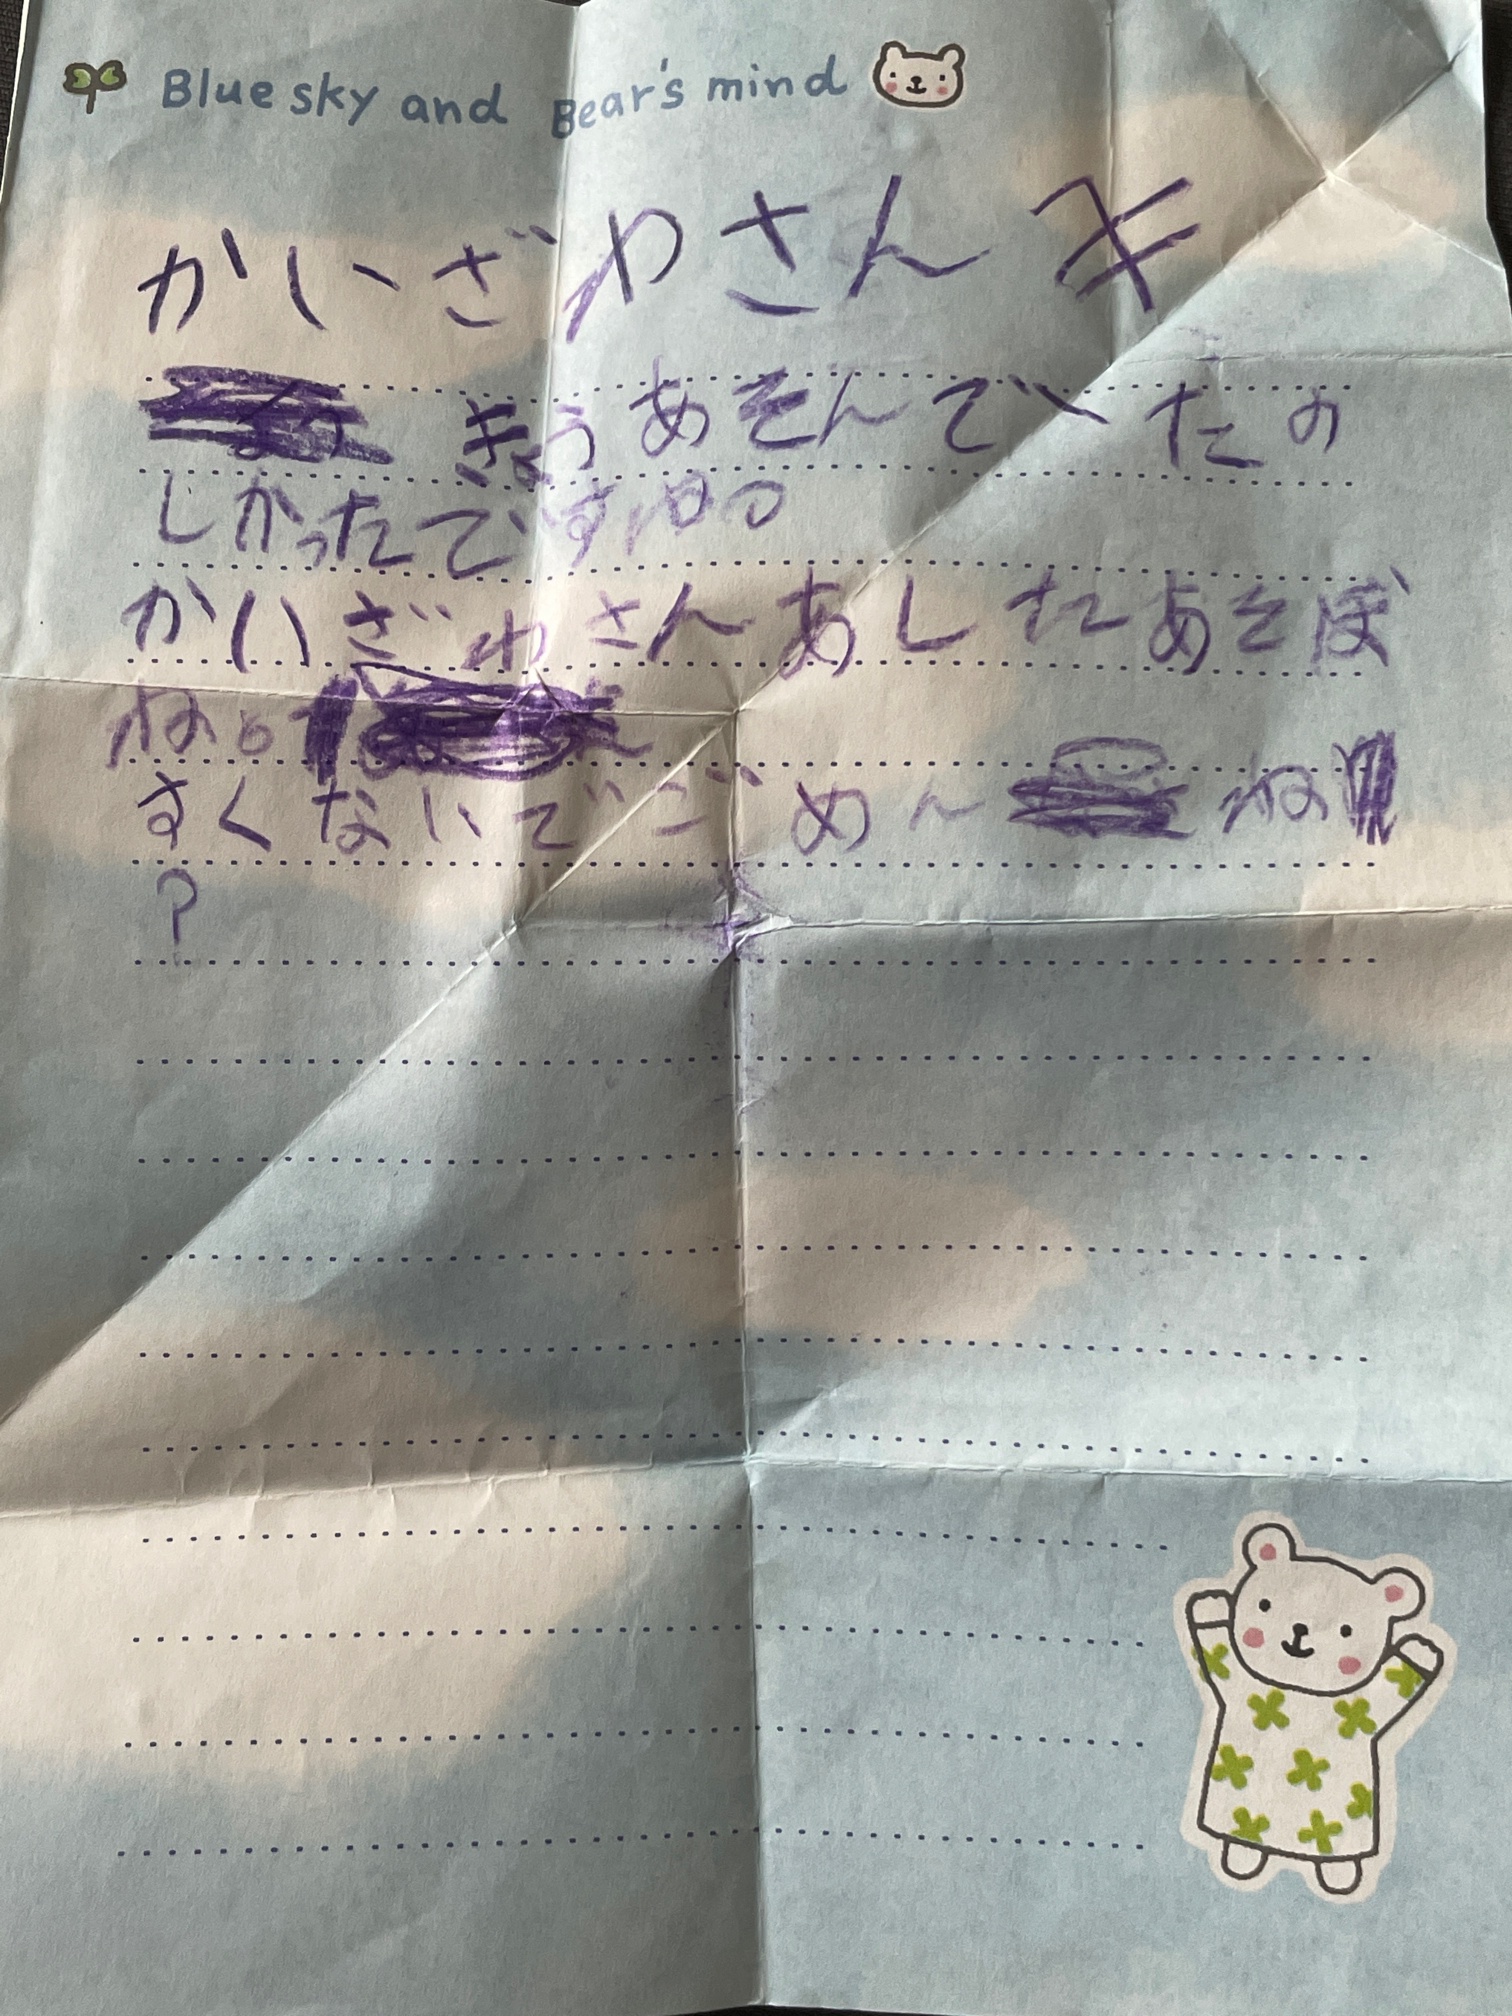 Blue sky and Bear's mind
かいざわさんえ
きょうあそんでいたの
しかったですね。
かいざわさんあしたあそぼ
ね。
すくないでごめんね
?